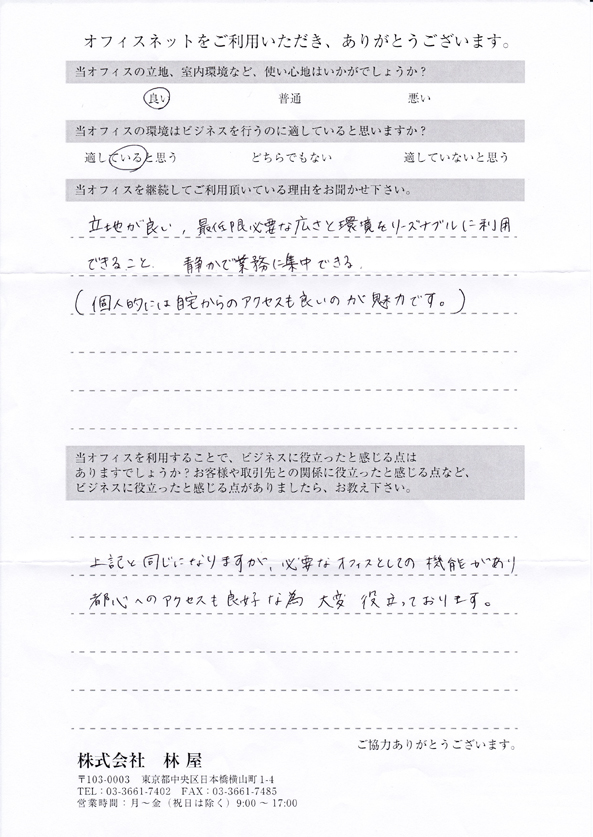 オフィスネットをご利用いただき、ありがとうございます。
当オフィスの立地、室内環境など、使い心地はいかがでしょうか?
良い 普通 悪い
当オフィスの環境はビジネスを行うのに適していると思いますか?
適していると思う どちらでもない 適していないと思う
当オフィスを継続してご利用頂いている理由をお聞かせ下さい。
立地が良い, 最低限必要な広さと環境をリーズナブルに利用
できること. 静かで業務に集中できる.
(個人的には自宅からのアクセスも良いのが魅力です。)
当オフィスを利用することで、ビジネスに役立ったと感じる点は
ありますでしょうか?お客様や取引先との関係に役立ったと感じる点など、
ビジネスに役立ったと感じる点がありましたら、お教え下さい。
上記と同じになりますが、必要なオフィスとしての機能があり
都心へのアクセスも良好な為 大変 役立っております。
ご協力ありがとうございます。
株式会社 林屋
〒103-0003 東京都中央区日本橋横山町1-4
TEL:03-3661-7402 FAX:03-3661-7485
営業時間:月~金(祝日は除く)9:00~17:00